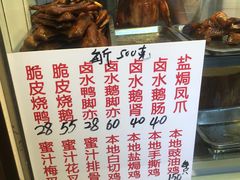 每斤500克
盐焗凤爪
卤水鹅肠 40
卤水鹅肾 40
卤水鹅脚亦 60
卤水鸭脚亦 28
脆皮烧鹅 55
脆皮烧鸭 28
本地豉油鸡
本地手撕鸡
本地盐焗鸡
本地白切鸡
蜜汁排
蜜汁花
蜜汁梅